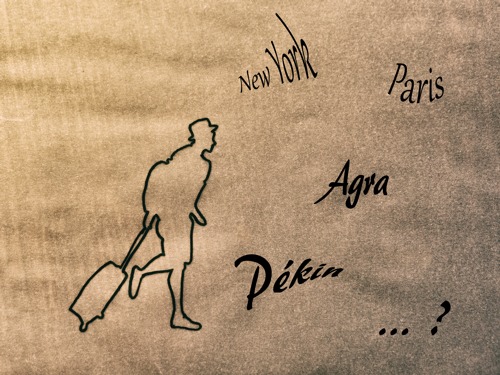 New York
Paris
Agra
Pékin
... ?